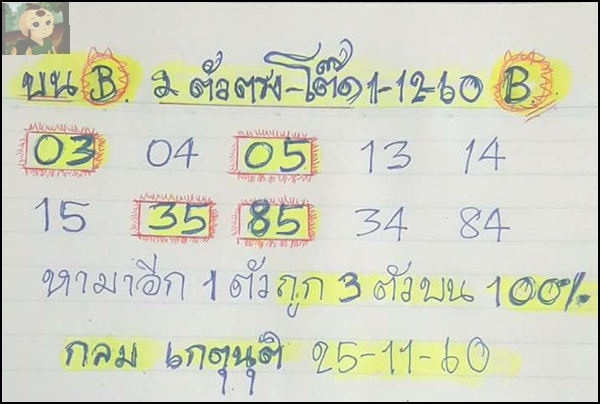 บน B. 2 ตัวตรง-โต๊ด 1-12-60 B.
03 04 05 13 14
15 35 85 34 84
หามาอีก 1 ตัวถูก 3 ตัวบน 100%
กลม เกตุนุติ 25-11-60